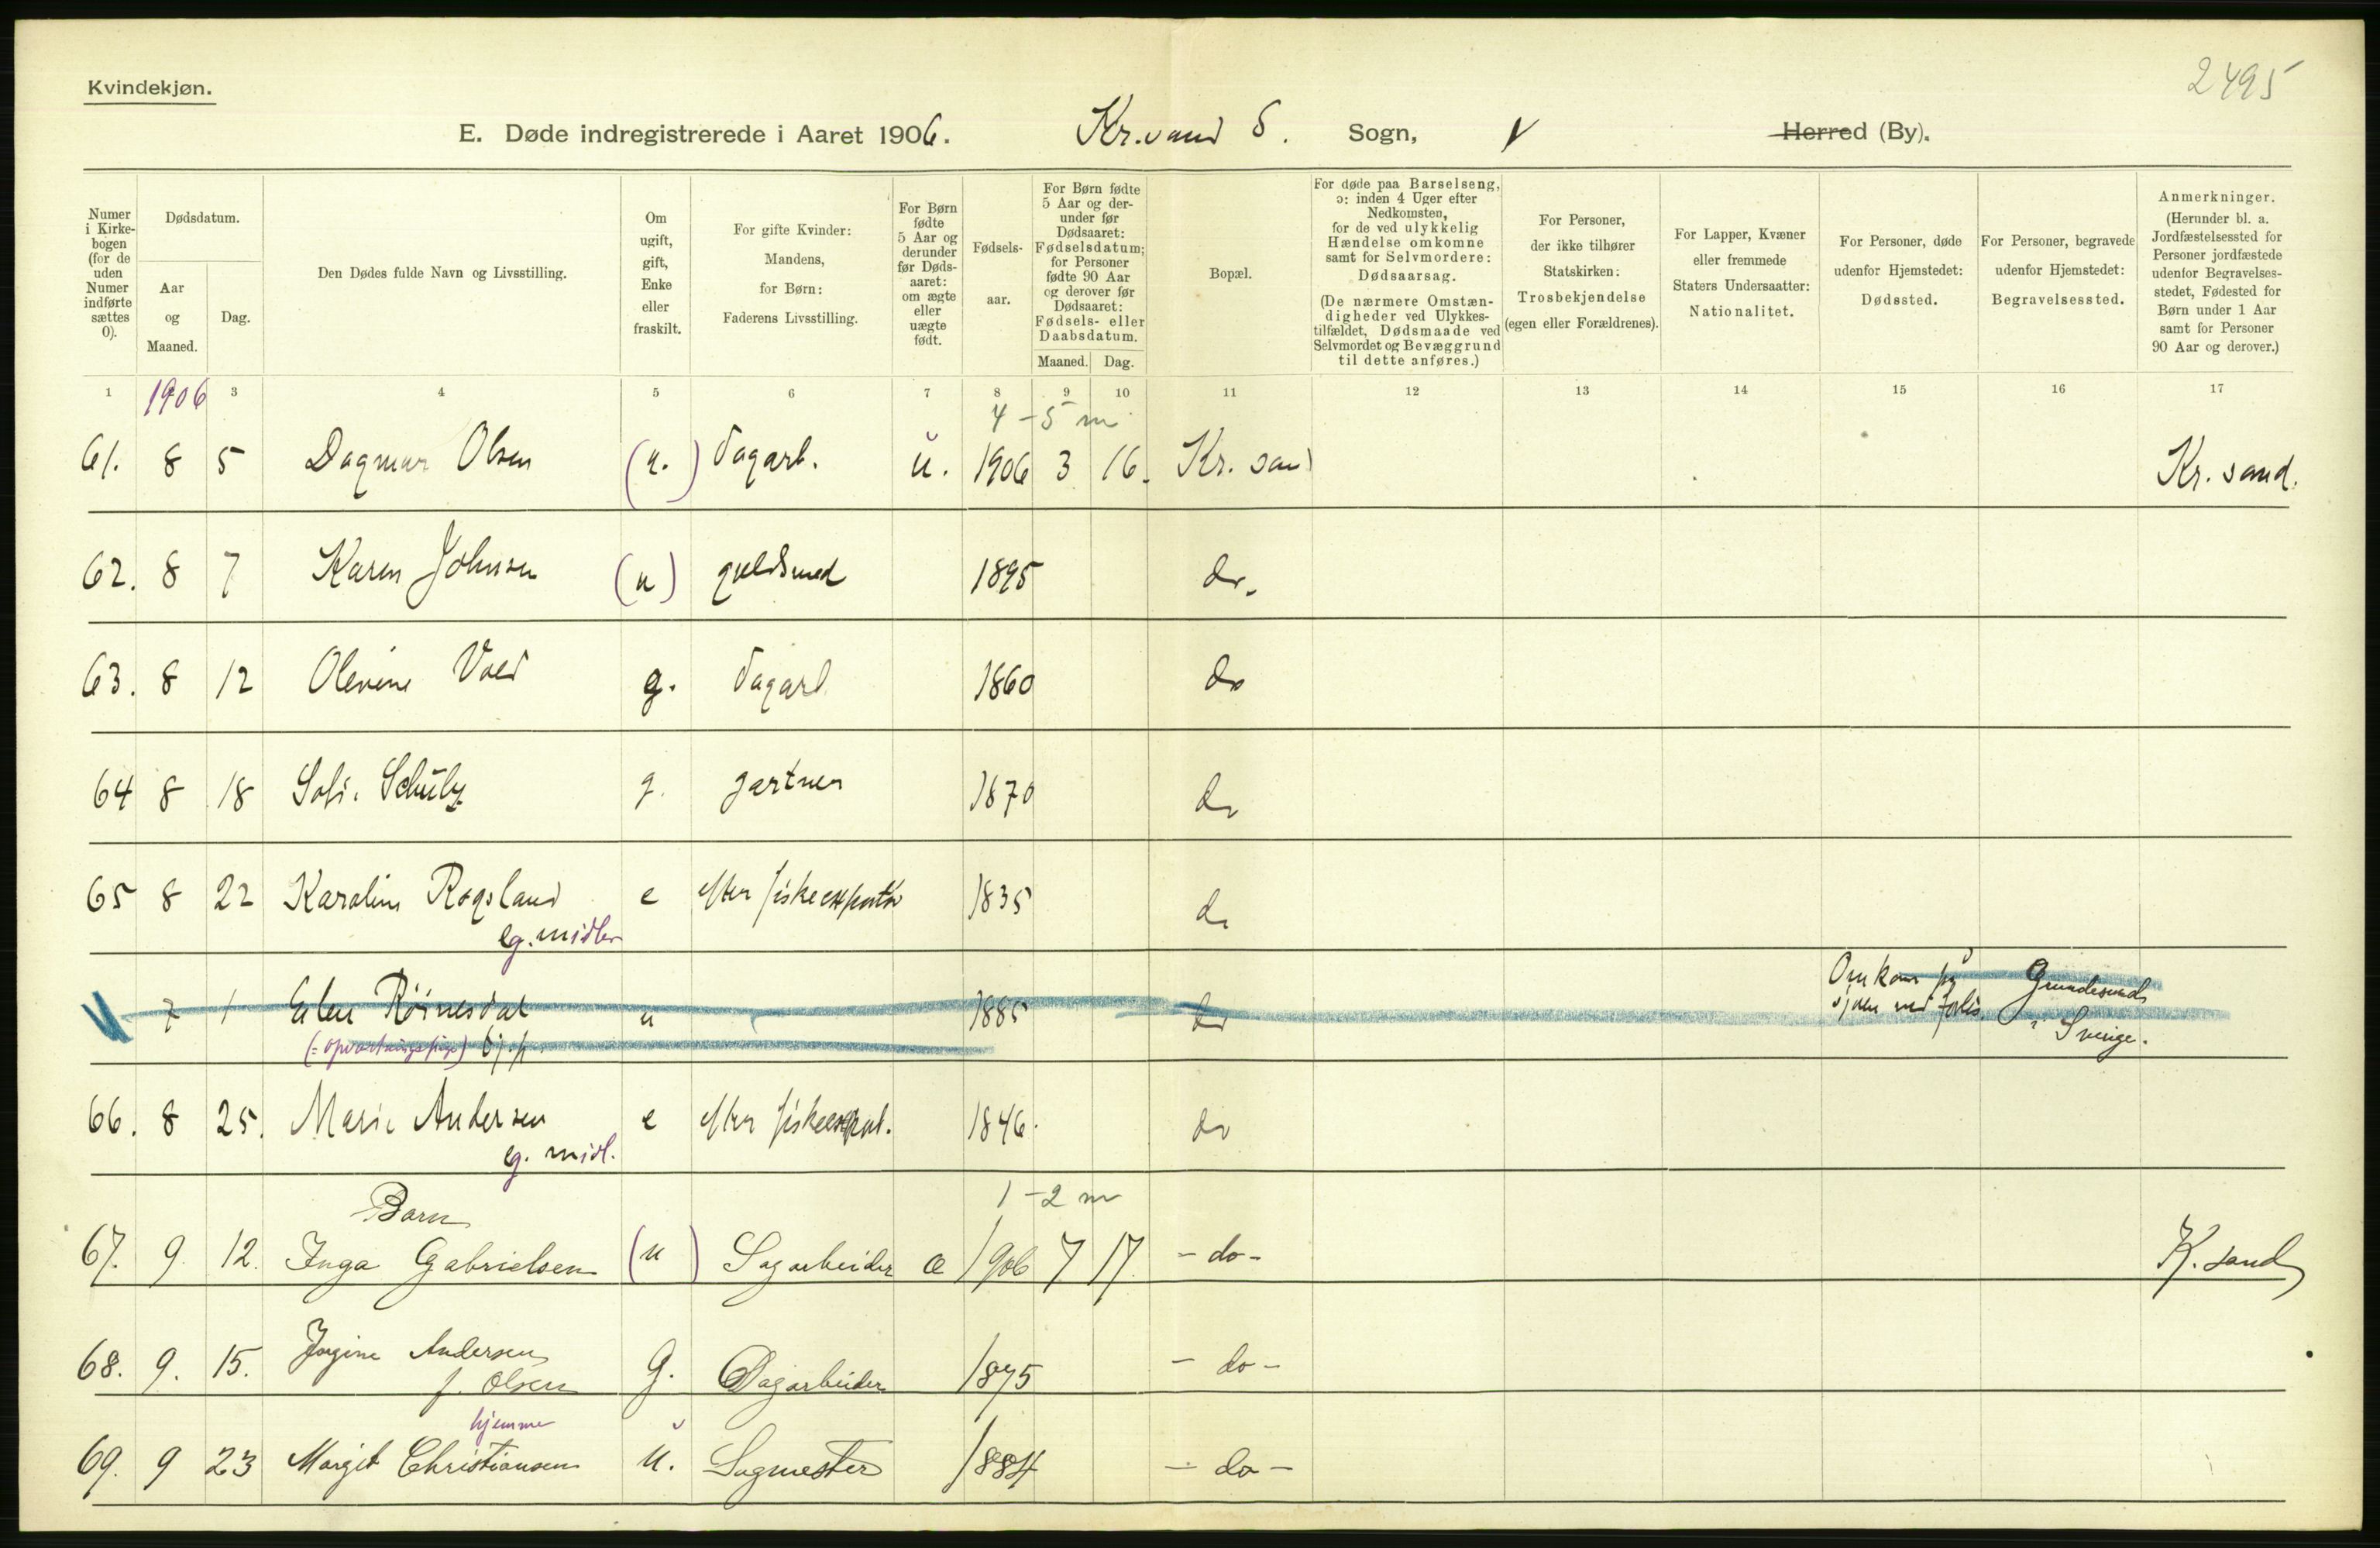 Kvindekjøn.
2495
E. Døde indregistrerede i Aaret 1906. Kr.sand S. Sogn, Herred (By).
Numer i Kirke-bogen (for de uden Numer indførte sættes 0).
Dødsdatum.
Aar og Maaned.
Dag.
Den Dødes fulde Navn og Livsstilling.
Om ugift, gift, Enke eller fraskilt.
For gifte Kvinder: Mandens, for Børn: Faderens Livsstilling.
For Børn fødte 5 Aar og derunder før Døds-aaret: om ægte eller uægte født.
Fødsels-aar.
For Børn fødte 5 Aar og der-under før Dødsaaret: Fødselsdatum; for Personer fødte 90 Aar og derover før Dødsaaret: Fødsels- eller Daabsdatum.
Maaned. Dag.
Bopæl.
For døde paa Barselseng, ɔ: inden 4 Uger efter Nedkomsten, for de ved ulykkelig Hændelse omkomne samt for Selvmordere: Dødsaarsag.
(De nærmere Omstæn-digheder ved Ulykkes-tilfældet, Dødsmaade ved Selvmordet og Bevæggrund til dette anføres.)
For Personer, der ikke tilhører Statskirken: Trosbekjendelse (egen eller Forældrenes).
For Lapper, Kvæner eller fremmede Staters Undersaatter: Nationalitet.
For Personer, døde udenfor Hjemstedet: Dødssted.
For Personer, begravede udenfor Hjemstedet: Begravelsessted.
Anmerkninger. (Herunder bl. a. Jordfæstelsessted for Personer jordfæstede udenfor Begravelses-stedet, Fødested for Børn under 1 Aar samt for Personer 90 Aar og derover.)
1 1906 3 4 5 6 7 8 9 10 11 12 13 14 15 16 17
4 - 5 m
61. 8 5 Dagmar Olsen (u.) dagarb. u. 1906 3 16. Kr. sand Kr. sand.
62. 8 7 Karen Johnsen (u) guldsmed 1895 do.
63. 8 12 Olevine Vold g. dagarb 1860 do
64 8 18 Sofi. Schulz g. gartner 1870 do
65 8 22 Karoline Rogsland e efter fiskeexportør 1835 do
eg. midler
7 1 Elen u 1885 do Omkom på sjøen ved forlis. Grundesund i Sverige.
(: opvartningspige)
66. 8 25. Marie Andersen e efter fiskeexport. 1846. do
eg. midl.
Barn 1 - 2 m
67. 9. 12. Inga Gabrielsen (u) Sagarbeider æ 1906 7 17. - do - K. sand
68. 9. 15. Jørgine Andersen g. Dagarbeider 1875 - do -
f. Olsen
hjemme
69. 9 23 Margit Christiansen u. Sagmester 1884 - do -